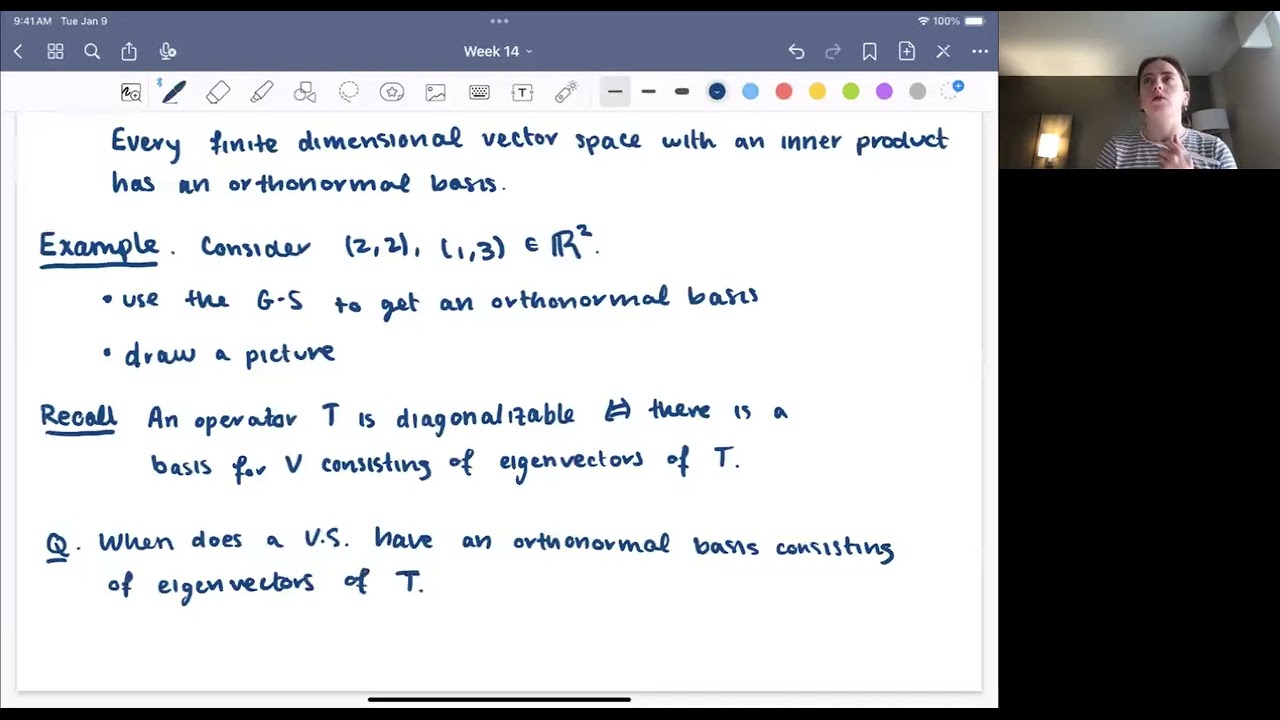 9:41 AM Tue Jan 9
100%
Week 14
Every finite dimensional vector space with an inner product
has an orthonormal basis.
Example. Consider (2,2), (1,3) ∈ ℝ².
• use the G-S to get an orthonormal basis
• draw a picture
Recall An operator T is diagonalizable ⇔ there is a
basis for V consisting of eigenvectors of T.
Q. When does a V.S. have an orthonormal basis consisting
of eigenvectors of T.